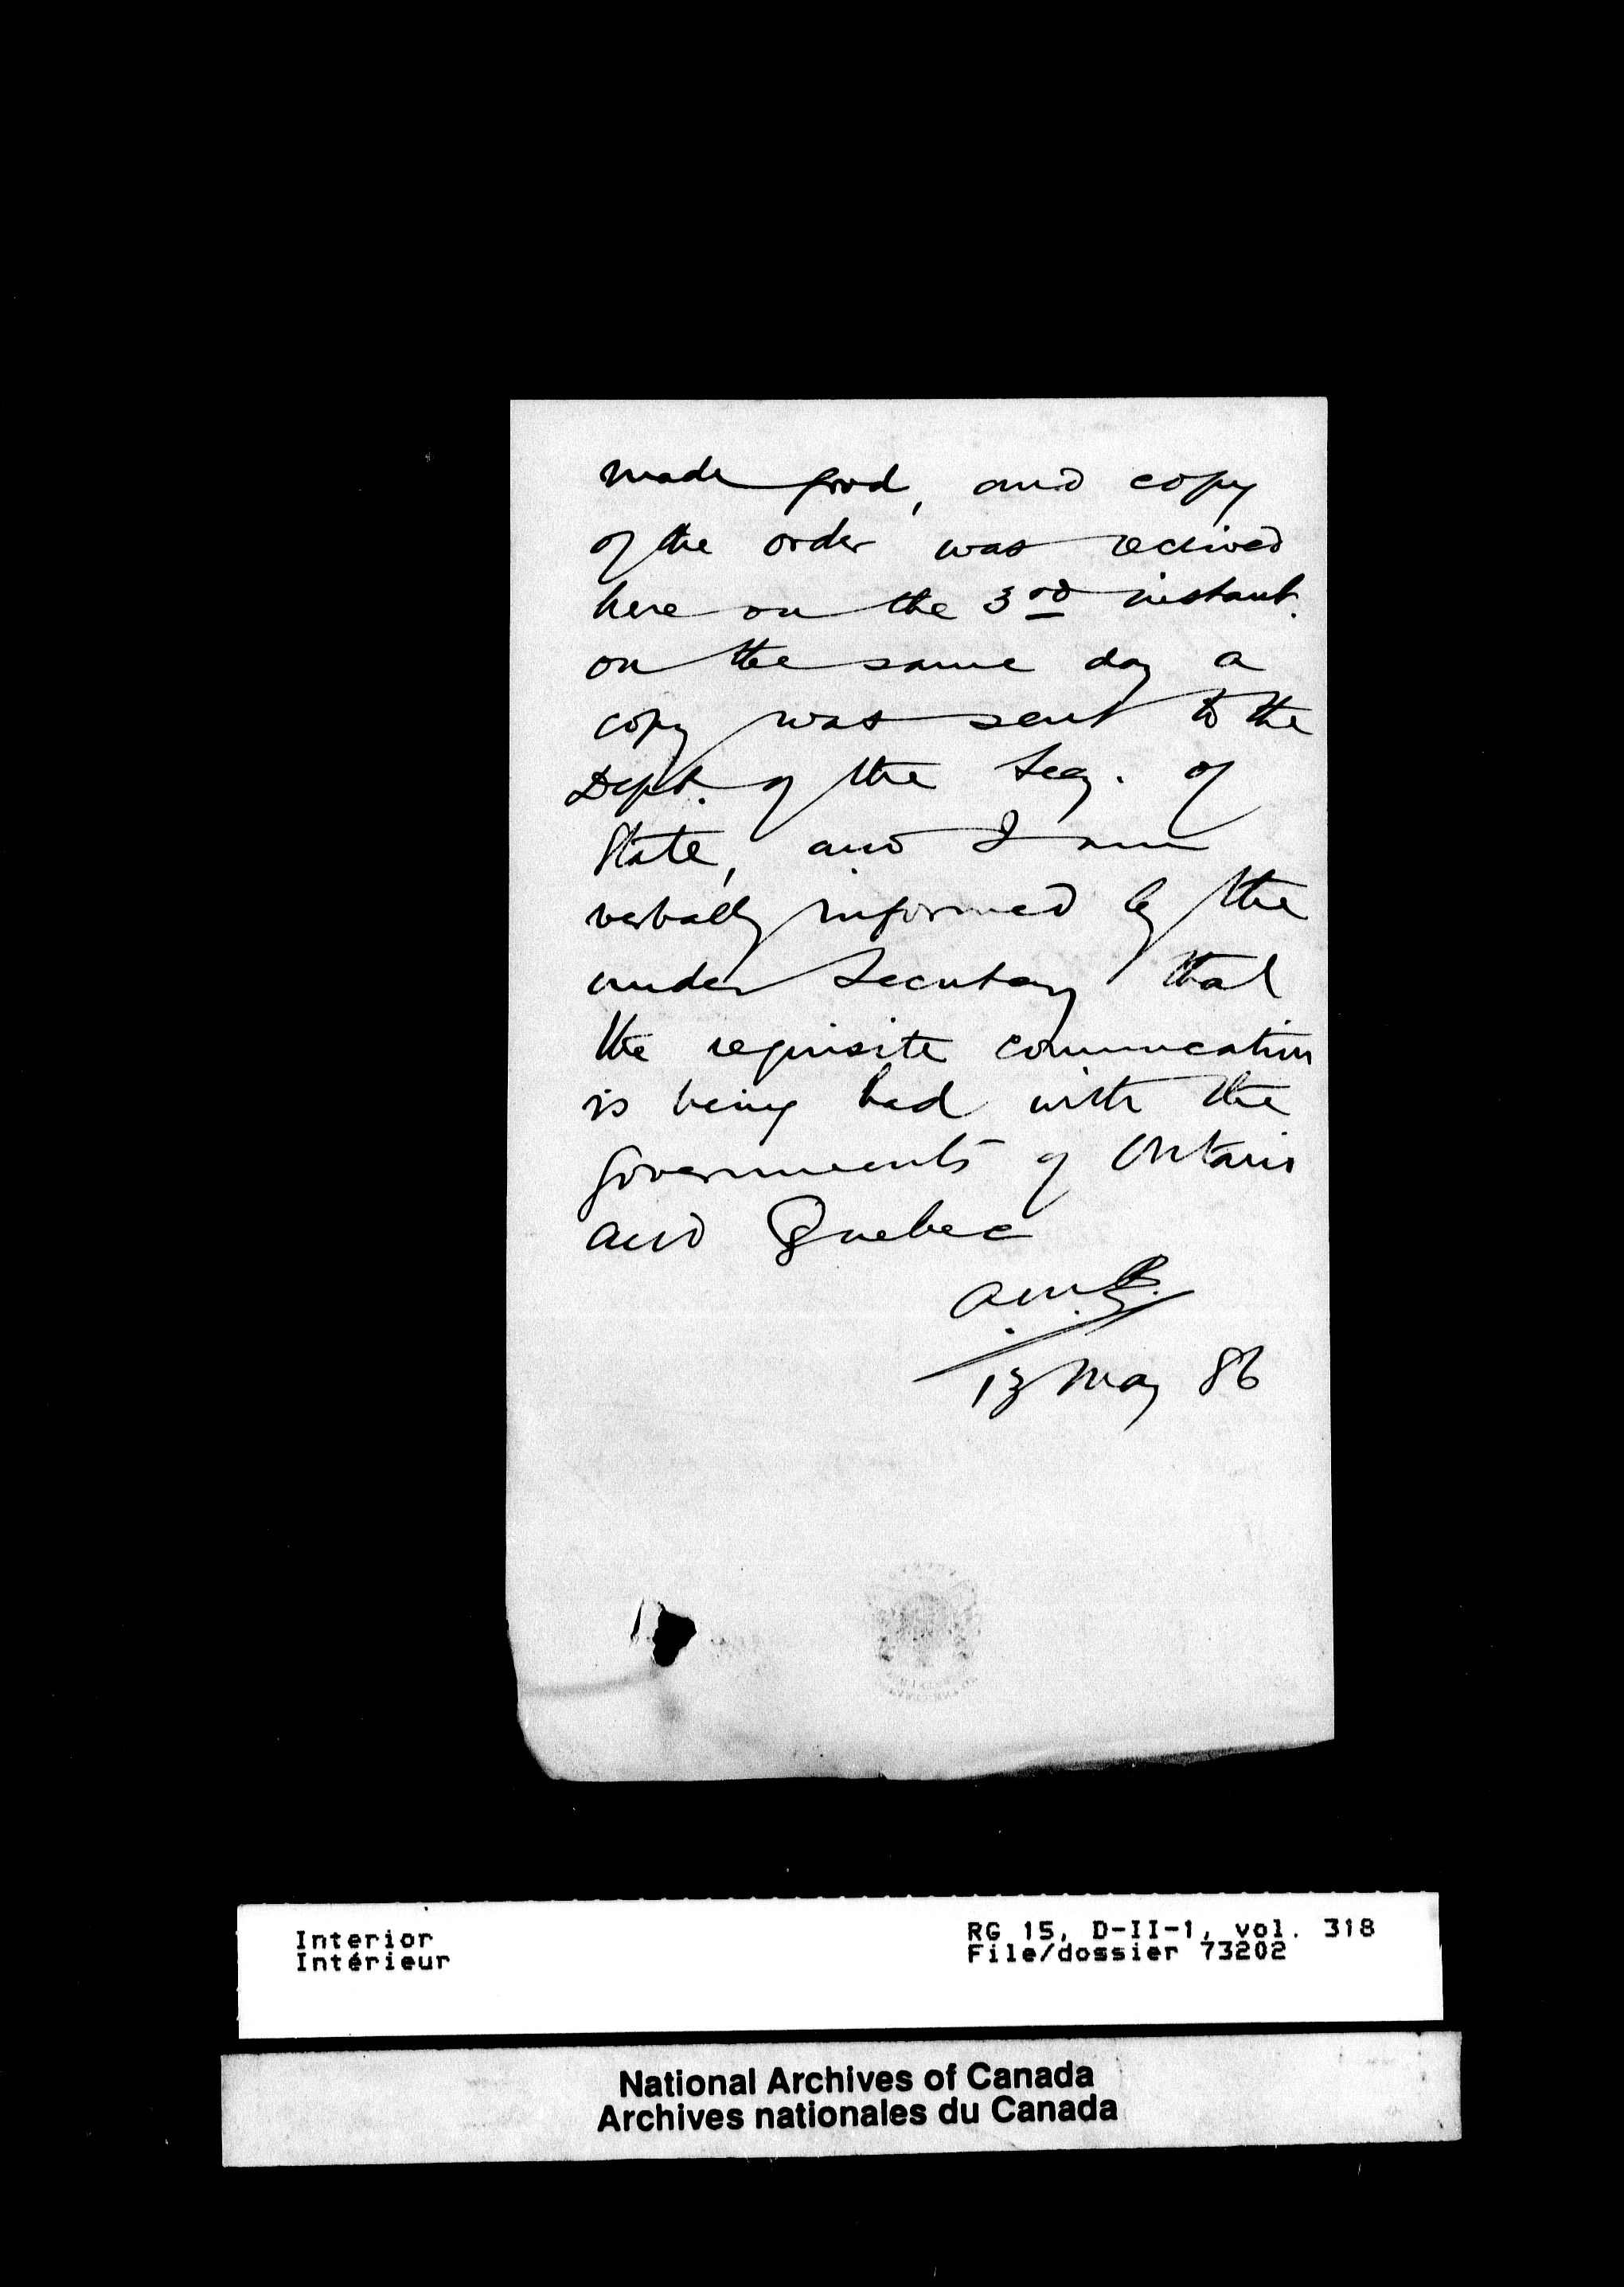 made good, and copy
of the order was received
here on the 3rd instant.
on the same day a
copy was sent to the
Dept. of the Secy. of
State, and I am
verbally informed by the
under Secretary that
the requisite communication
is being had with the
Governments of Ontario
and Quebec
A.M.B.
13 May 86
Interior
Intérieur
RG 15, D-II-1, vol. 318
File/dossier 73202
National Archives of Canada
Archives nationales du Canada